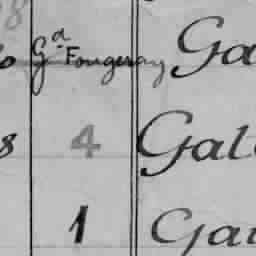 Gd Fougeray Ga
8 4 Gal
1 Gau